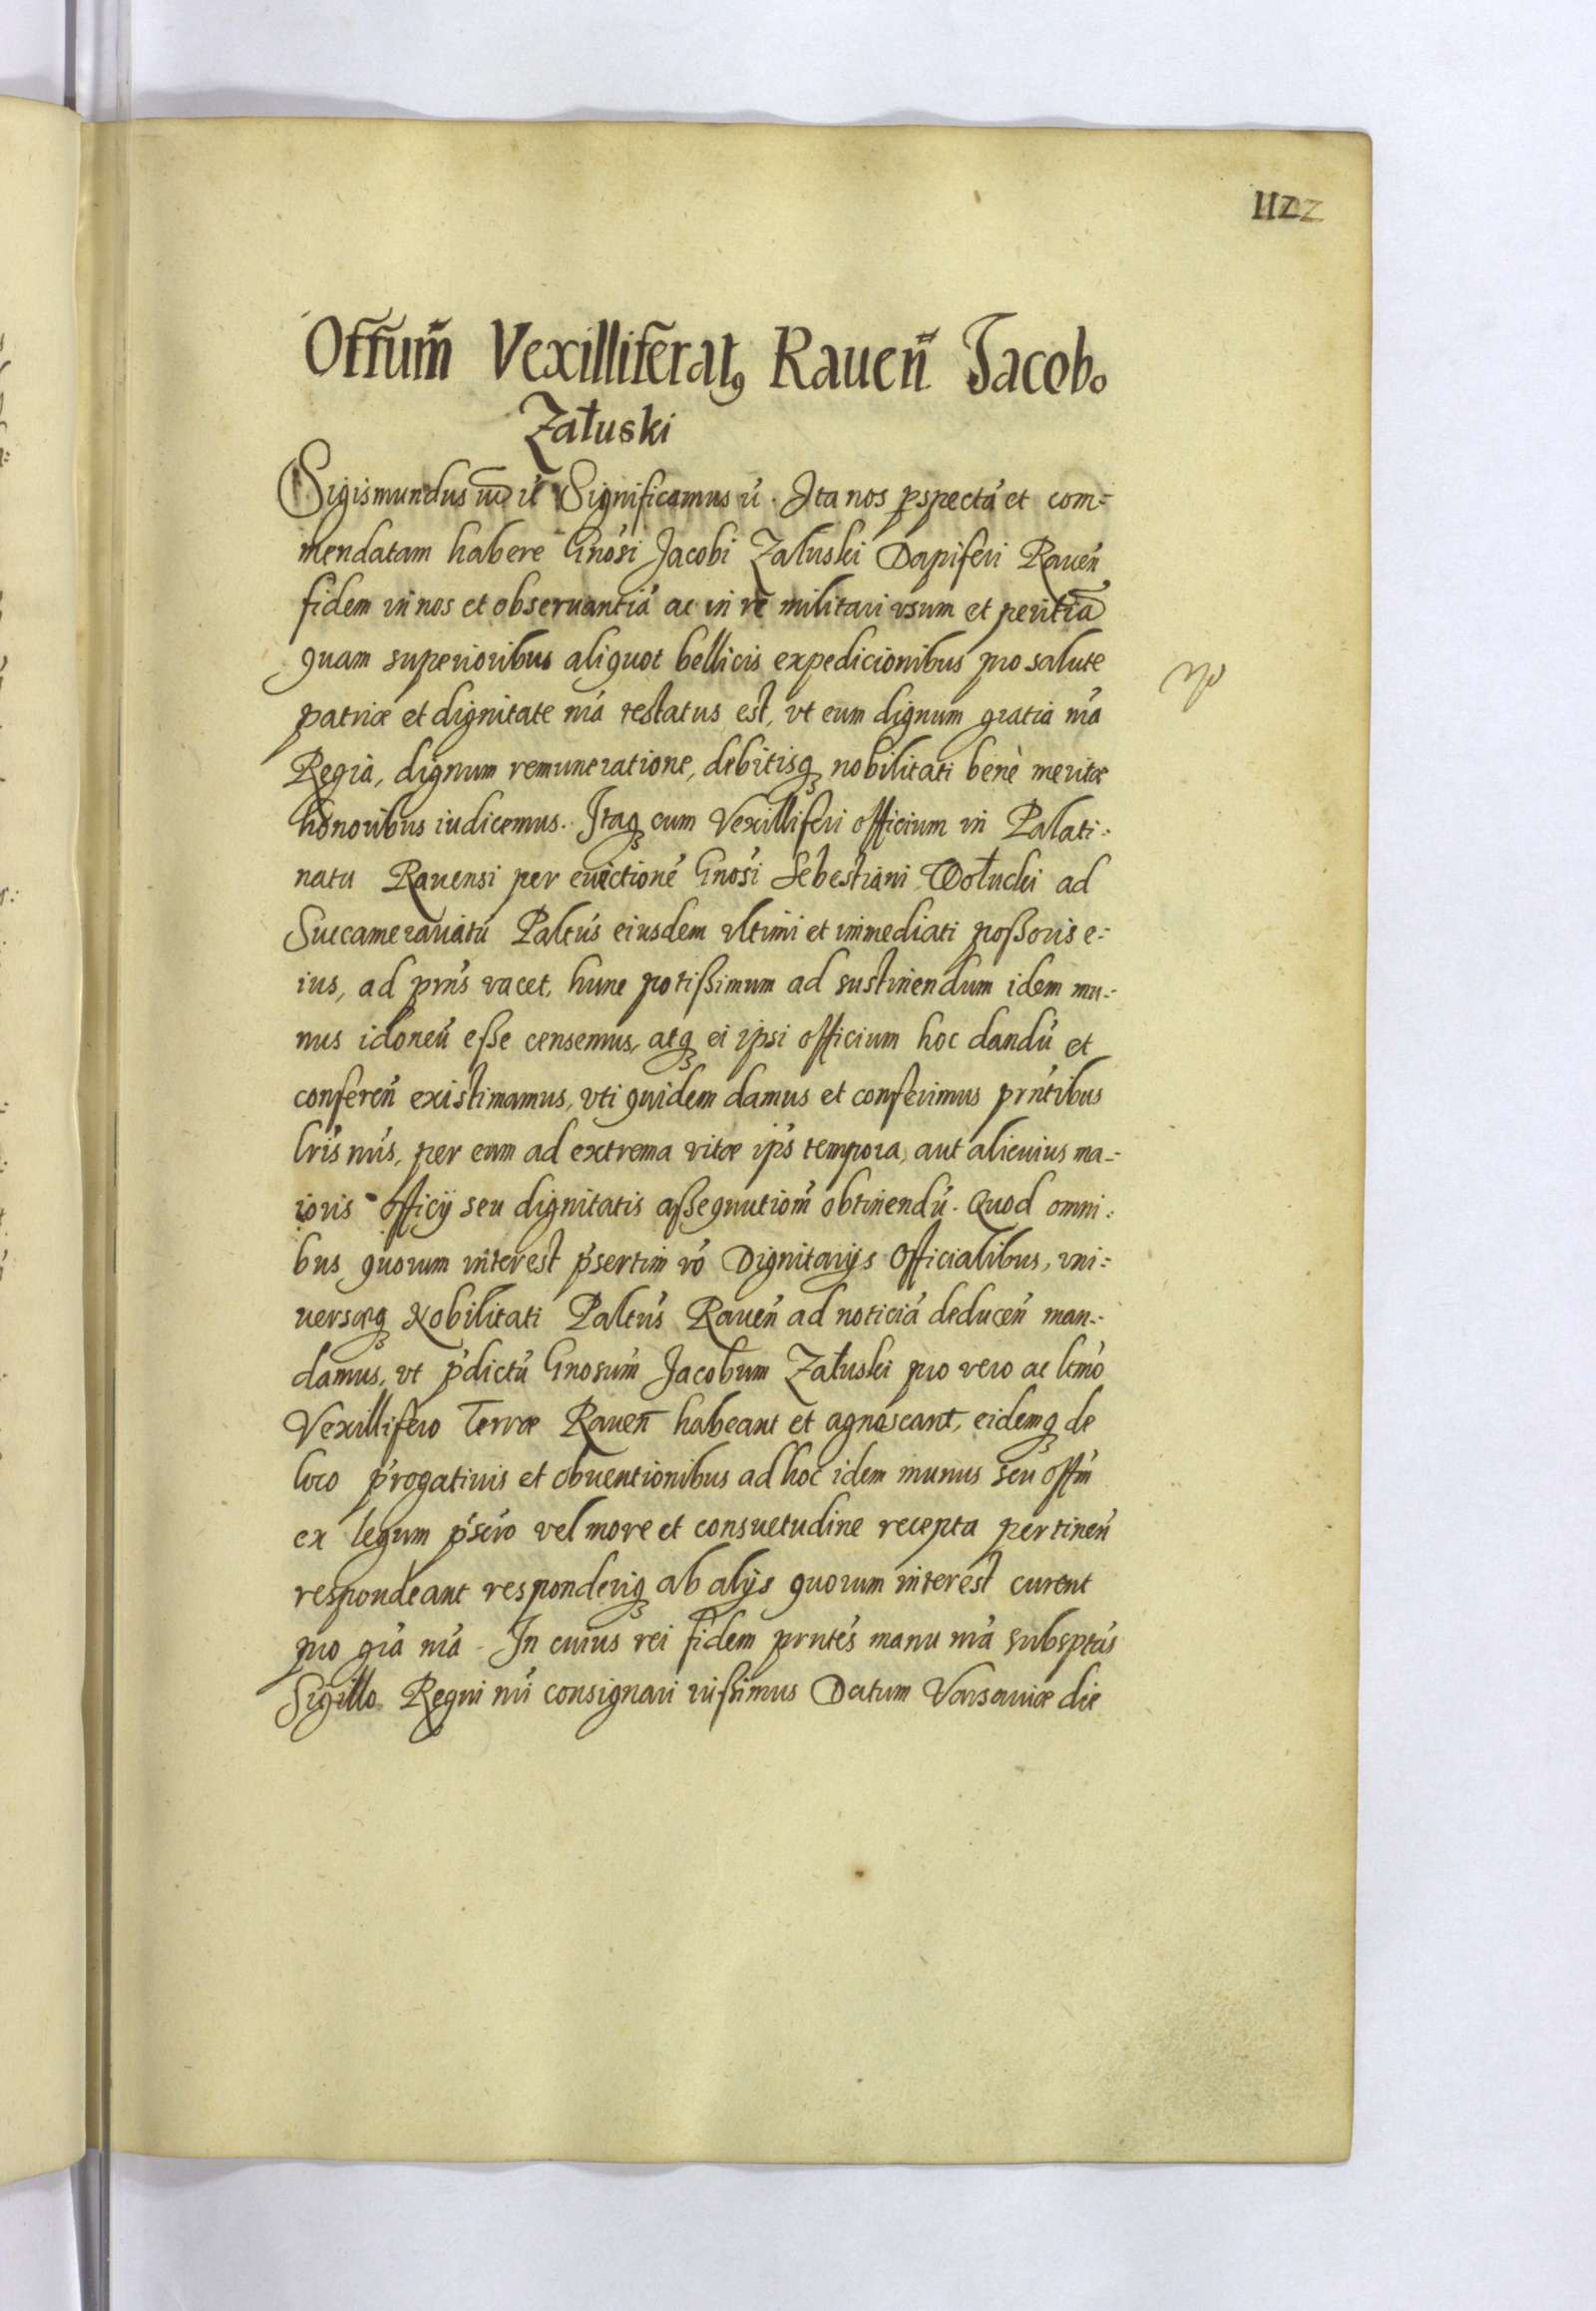 IIZZ
Offum̃ Vexilliferatꝰ Rauen̄ Jacobo
Załuski
Sigismundus Significamus ū. Ita nos pspectá et com:
mendatam habere Gnosi Jacobi Załuski Dapiferi Rauen̄
fidem in nos et obseruantiá ac in re militari vsum et peritiā
quam superioribus aliquot bellicis expedicionibus pro salute
patriæ et dignitate nrá testatus est, vt eum dignum gratia nrá
Regia, dignum remuneratione, debitisq nobilitati benè meritæ
honoribus iudicemus. Itaq cum Vexilliferi officium in Palati:
natu Rauensi per euictioné Gnosi Sebestiani Wołucki ad
Succamerariatú Paltús eiusdem vltimi et immediati poßoris e:
ius, ad prns vacet, hunc potißimum ad sustinendum idem mu:
nus idoneú eße censemus, atq ei ipsi officium hoc dandú et
conferen̄ existimamus, vti quidem damus et conferimus prntibus
lris nris, per eum ad extrema vitæ ips tempora, aut alicuius ma:
ioris officij seu dignitatis aßequutioni obtinendú. Quod omni:
bus quorum interest psertim vó Dignitarijs Officialibus, vni:
uersæq Nobilitati Paltús Rauen̄ ad noticiá deducen̄ man:
damus, vt pdictú Gnosum Jacobum Załuski pro vero ac ltmó
Vexillifero Terræ Rauen̄ habeant et agnoscant, eidemq de
loco progatiuis et obuentionibus ad hoc idem munus seu offm̃
ex legum psció vel more et consuetudine recepta pertinen̄
respondeant responderiq ab alijs quorum interest curent
pro gra nrá. In cuius rei fidem prntes manu nrá subsptás
Sigillo Regni nri consignari iußimus Datum Varsauiæ die